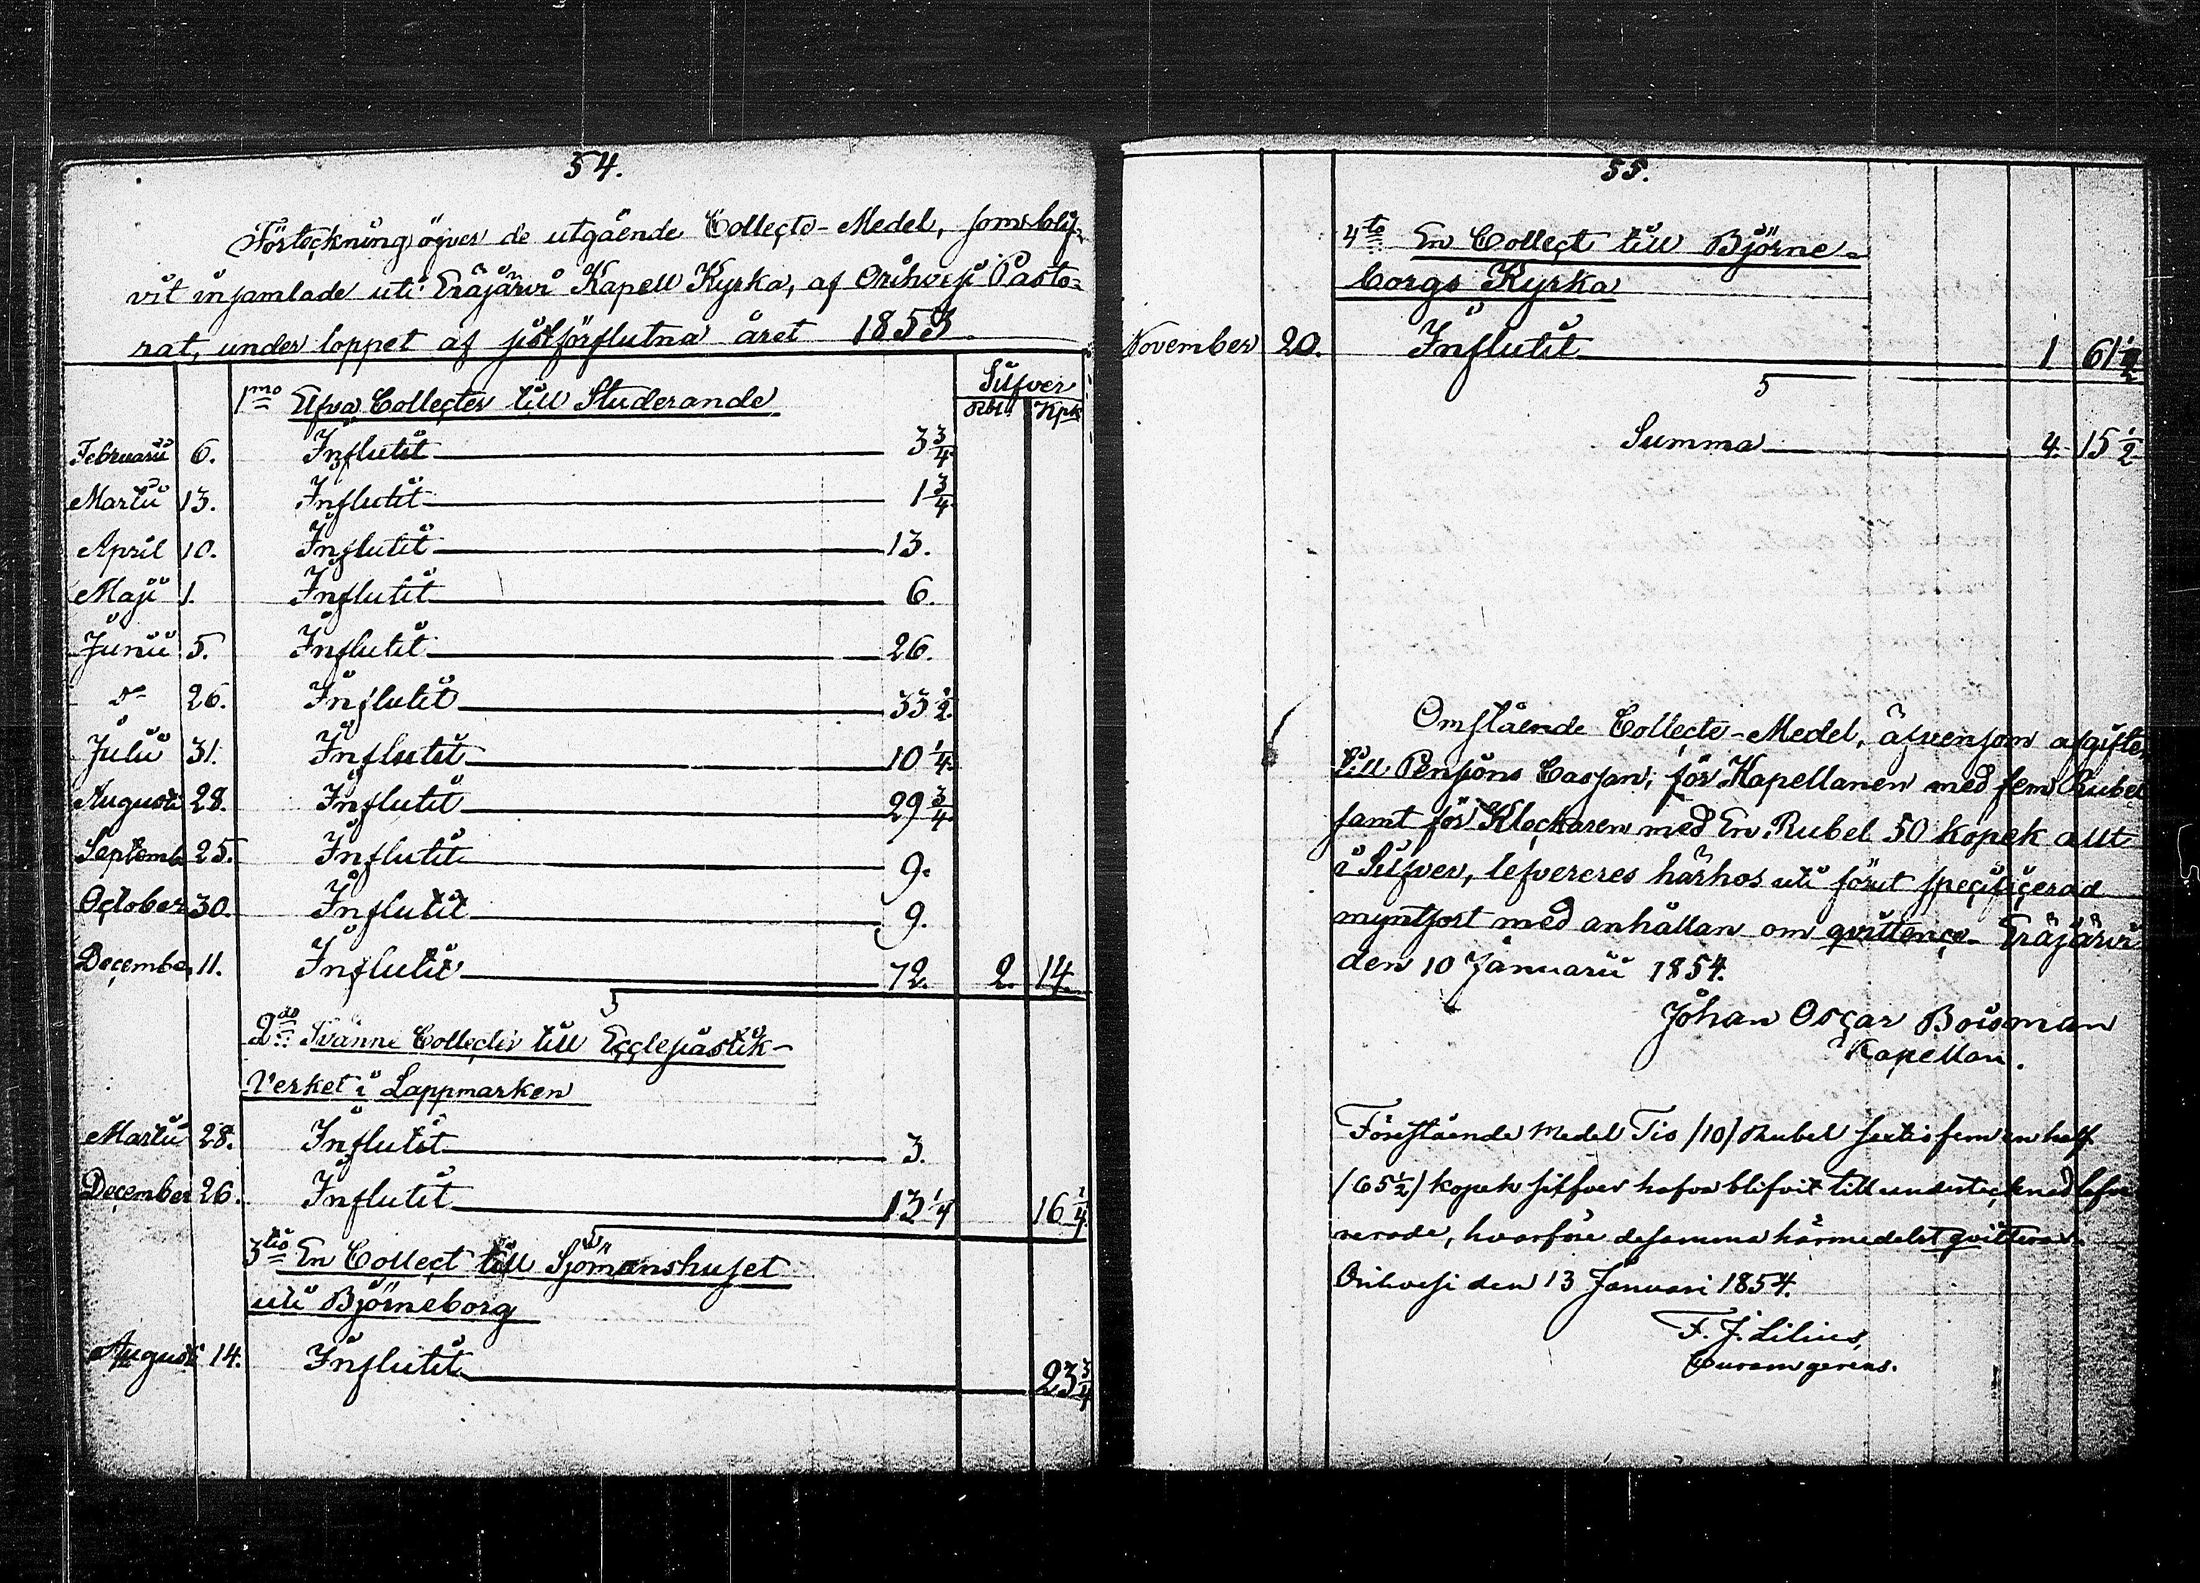 54.
Förteckning öfver de utgående Collecte-Medel, som blif-
vit insamlade uti Eräjärvi Kapell Kyrka, af Orihvesi Pasto-
rat, under loppet af sistförflutna året 1853.
Silfver
1mo Elfva Collecter till Studerande Rbl. Kpk
Februarii 6. Influtit 3 3/4
Martii 13. Influtit 1 3/4
April 10. Influtit 13.
Maji 1. Influtit 6.
Junii 5. Influtit 26.
do 26. Influtit 33 1/2.
Julii 31. Influtit 10 1/4.
Augusti 28. Influtit 29 3/4
Septemb 25. Influtit 9.
October 30. Influtit 9.
December 11. Influtit 72. 2. 14.
2do Tvänne Collecter till Ecclesiastik-
Verket i Lappmarken
Martii 28. Influtit 3.
December 26. Influtit 13 1/4 16 1/4
3tio En Collect till Sjömanshuset
uti Björneborg
Augusti 14. Influtit 23 3/4
55.
4to En Collect till Björne-
borgs Kyrka
November 20. Influtit 1 61 1/2
Summa 4. 15 1/2
Omstående Collecte-Medel, äfvensom afgifte
till Pensions Cassan, för Kapellanen med fem Rubel
samt för Klockaren med En Rubel 50 kopek allt
i Silfver, lefvereres härhos uti förut specificerad
myntsort med anhållan om qvittence. Eräjärvi
den 10 Januarii 1854.
Johan Oscar Boisman
Kapellan.
Förestående Medel Tio /10/ Rubel sextiofem en half
/65 1/2/ kopek silfver hafva blifvit till undertecknad lefve
rerade, hvarföre desamma härmedelst qvitteras.
Orihvesi den 13 Januari 1854.
F. J. Lilius,
Curam gerens.